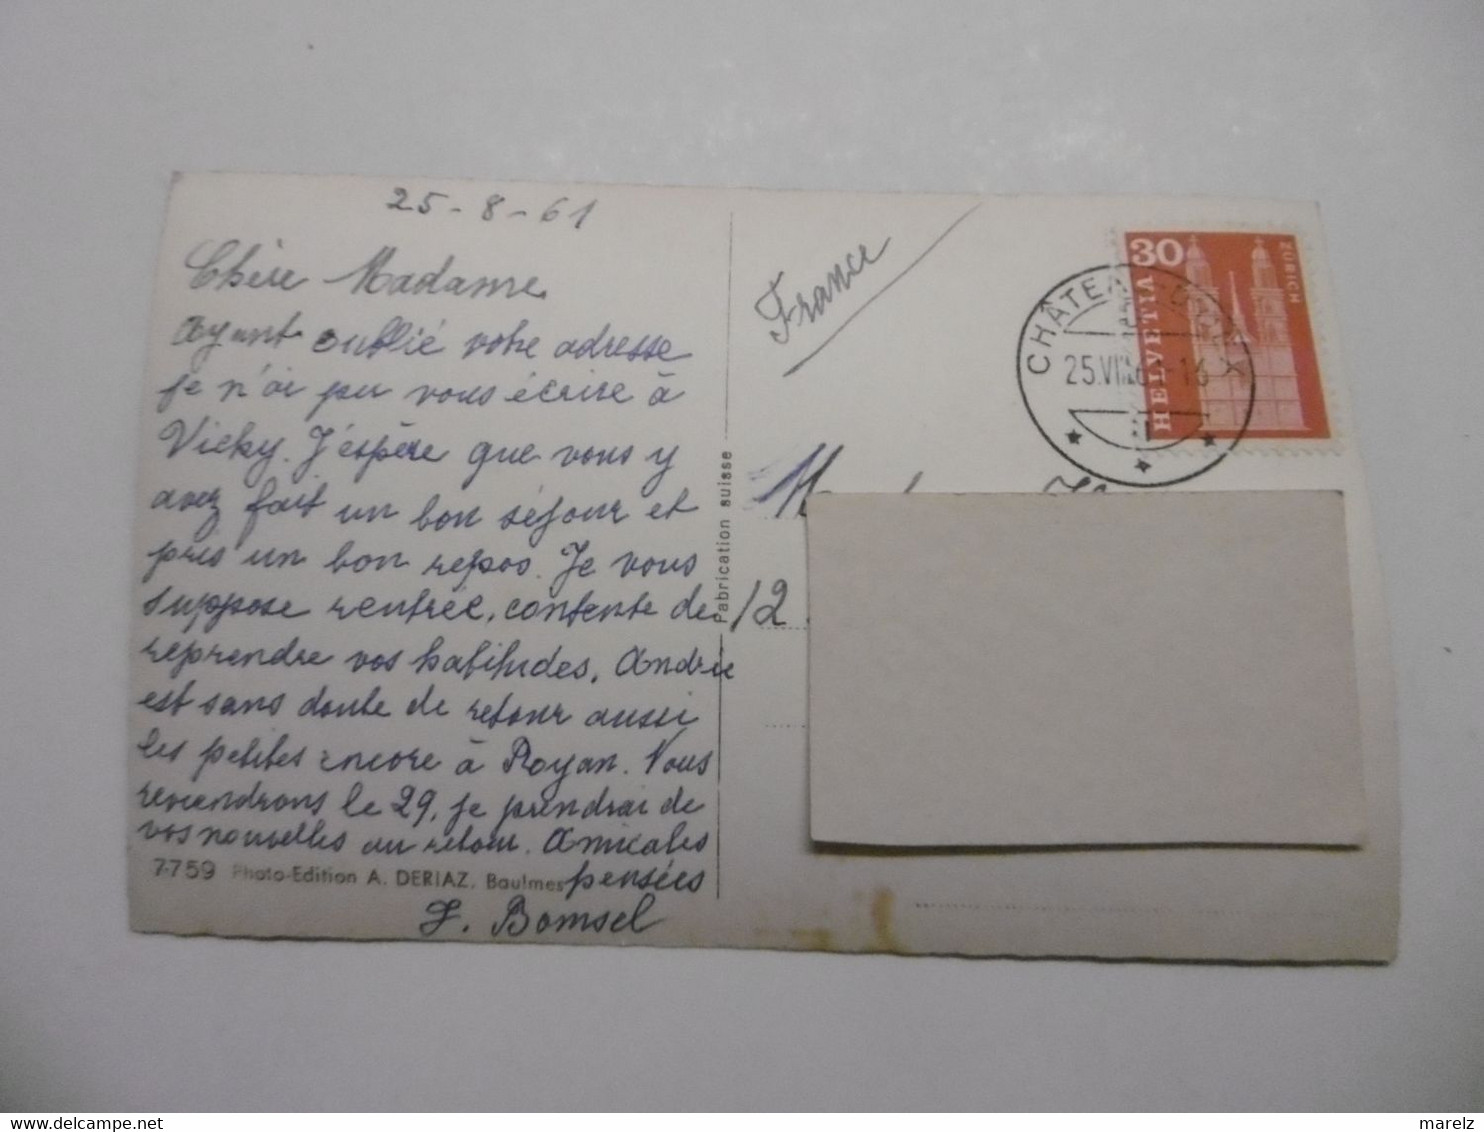 25-8-61
Chère Madame
Ayant oublié votre adresse
je n'ai pu vous écrire à
Vicky. J'espère que vous y
avez fait un bon séjour et
pris un bon repos. Je vous
suppose rentrée, contente de
reprendre vos habitudes. Andrée
est sans doute de retour aussi
les petites encore à Royan. Nous
reviendrons le 29, je prendrai de
vos nouvelles au retour. Amicales
pensées
7-759 Photo-Edition A. DERIAZ. Baulmes
J. Bomsel
Fabrication suisse
France
12
30
HELVETIA
ZÜRICH
CHÂTEAU-D'ŒX
25.VIII.61-16
www.delcampe.net
marelz